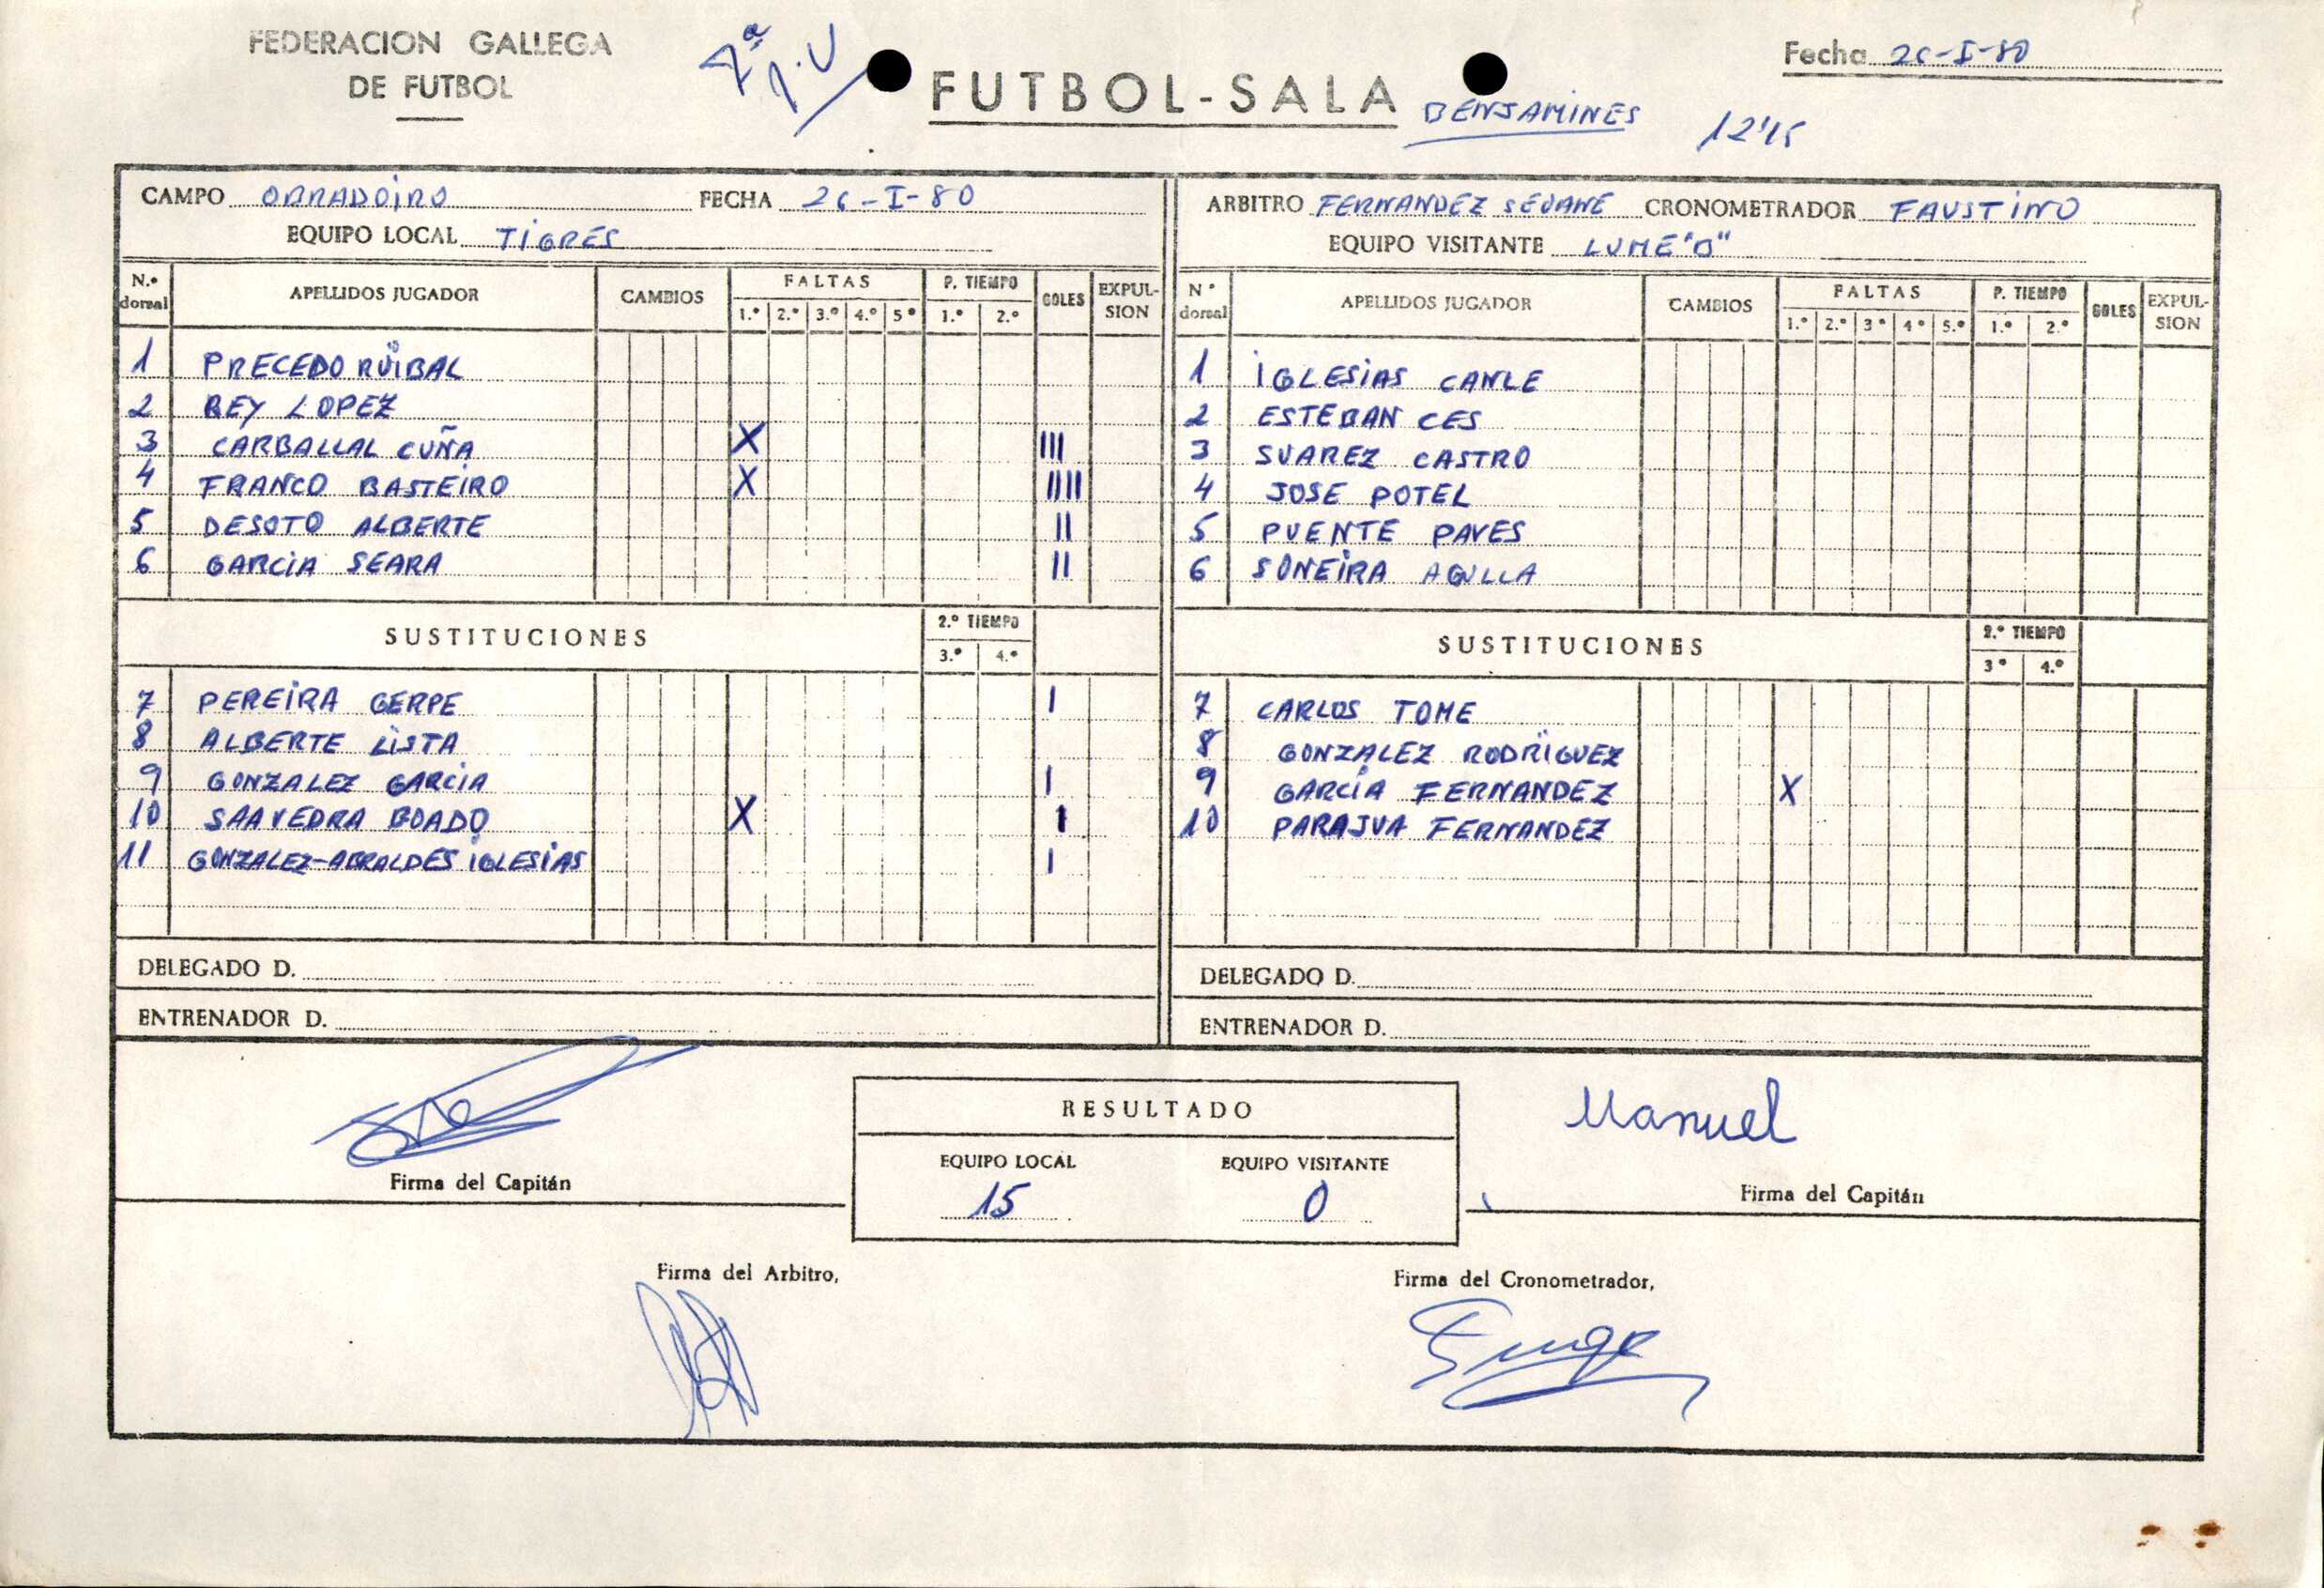 FEDERACION GALLEGA
DE FUTBOL
2ª J.U
FUTBOL-SALA
BENJAMINES
12'15
Fecha 26-I-80
CAMPO OBRADOIRO FECHA 26-I-80
EQUIPO LOCAL TIGRES
N.º dorsal APELLIDOS JUGADOR CAMBIOS FALTAS 1.º 2.º 3.º 4.º 5º P. TIEMPO 1.º 2.º GOLES EXPULSION
1 PRECEDO RUIBAL
2 REY LOPEZ
3 CARBALLAL CUÑA X III
4 FRANCO BASTEIRO X IIII
5 DESOTO ALBERTE II
6 GARCIA SEARA II
SUSTITUCIONES 2.º TIEMPO 3.º 4.º
7 PEREIRA GERPE I
8 ALBERTE LISTA
9 GONZALEZ GARCIA I
10 SAAVEDRA BOADO X I
11 GONZALEZ-ABRALDES IGLESIAS I
DELEGADO D.
ENTRENADOR D.
ARBITRO FERNANDEZ SEOANE CRONOMETRADOR FAUSTINO
EQUIPO VISITANTE LUME "B"
Nº dorsal APELLIDOS JUGADOR CAMBIOS FALTAS 1.º 2.º 3º 4º 5.º P. TIEMPO 1.º 2.º GOLES EXPULSION
1 IGLESIAS CANLE
2 ESTEBAN CES
3 SUAREZ CASTRO
4 JOSE POTEL
5 PUENTE PAVES
6 SONEIRA AGULLA
SUSTITUCIONES 2.º TIEMPO 3º 4.º
7 CARLOS TOME
8 GONZALEZ RODRIGUEZ
9 GARCIA FERNANDEZ X
10 PARAJUA FERNANDEZ
DELEGADO D.
ENTRENADOR D.
Firma del Capitán
RESULTADO
EQUIPO LOCAL EQUIPO VISITANTE
15 0
Manuel
Firma del Capitán
Firma del Arbitro,
Firma del Cronometrador,